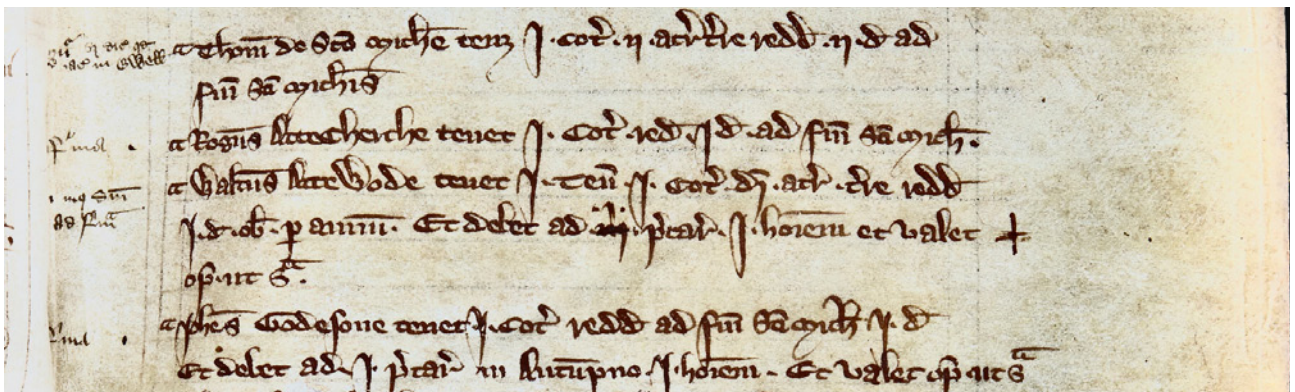 Thom̄ de Sc̄o Mich̄e tenȝ .J. Cot̄ .ij. acr̄ t̄re redd̄ .ij. d̄ ad
fm̄ Sc̄i Mich̄is
Rog̃us AtteCherche tenet .J. Cot̄ . red̄ . J d̄ . ad fm̄ Sc̄i Mich̄ .
Walt̃us Atte Wode tenet .J. Ten̄ .J. Cot̄ . dī . acr̄ . t̄re redd̄
.J. d̄ . ob̄ . p̱ annū . Et debet ad .iij. p̄car̄ . J . hoīem et valet +
op̄ . ut sᵃ .
Joh̄es Godesone tenet .J. Cot̄ redd̄ ad fm̄ Sc̄i Mich̄ .J. d̄
Et debet ad . J . p̄car̄ in Autūpno . J . hoīem . Et valet op̄ . ut sᵃ